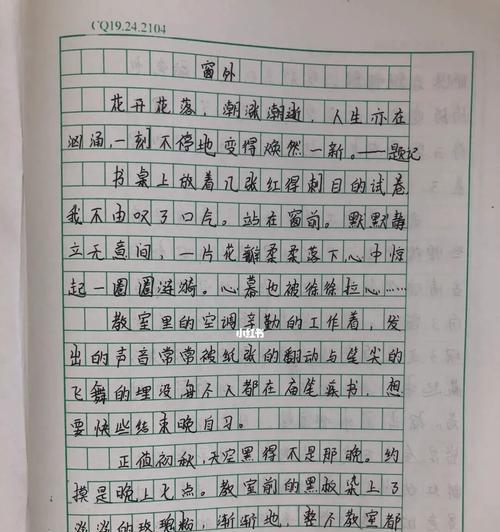 CQ19.24.2104
窗外
花开花落，潮涨潮逝，人生亦在
汹涌，一刻不停地变得焕然一新。——题记
书桌上放着几张红得刺目的试卷
我不由叹了口气。站在窗前。默默静
立无意间，一片花瓣柔柔落下心中惊
起一圈圈涟漪。心幕也被徐徐拉心……
教室里的空调辛勤的工作着，发
出的声音常常被纸张的翻动与笔尖的
飞舞的埋没每个人都在由笔疾书，想
要快些结束晚自习。
正值初秋，天空黑得不是那晚。约
摸是晚上七点。教室前的黑板染上了
淡淡的玫瑰板，渐渐地，整个教室都
小红书